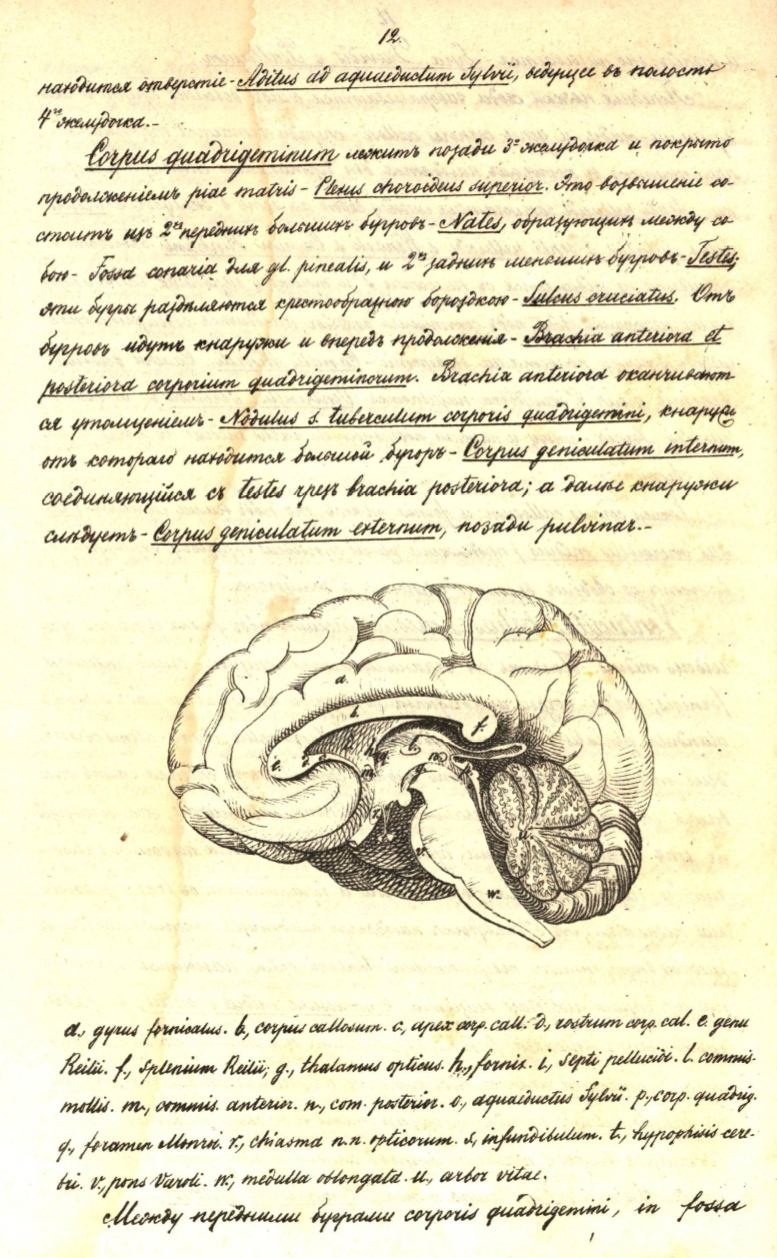 12.
находится отверстіе - Aditus ad aquaeductum Sylvii, ведущее въ полость
4го желудочка. -
Corpus quadrigeminum лежитъ позади 3го желудочка и покрыто
продолженіемъ piae matris - Plexus choroideus superior. Это возвышеніе со-
стоитъ изъ 2хъ переднихъ большихъ бугровъ - Nates, образующихъ между со-
бою - Fossa conaria для gl. pinealis, и 2хъ заднихъ меньшихъ бугровъ - Testes;
эти бугры раздѣляются крестообразною бороздкою - Sulcus cruciatus. Отъ
бугровъ идутъ кнаружи и впередъ продолженія - Brachia anteriora et
posteriora corporium quadrigeminorum. Brachia anteriora оканчивают
ся утолщеніемъ - Nodulus s. tuberculum corporis quadrigemini, кнаружи
отъ котораго находится большой бугоръ - Corpus geniculatum internum,
соединяющійся съ testes чрезъ brachia posteriora; а далѣе кнаружи
слѣдуетъ - Corpus geniculatum externum, позади pulvinar. -
a.
b.
f.
w.
a., gyrus fornicatus. b., corpus callosum. c., apex corp. call. d., rostrum corp. cal. e. genu
Reilii. f., splenium Reilii; g., thalamus opticus. h., fornix. i., septi pellucidi. l. commis-
mollis. m., commis. anterior. n., com. posterior. o., aquaeductus Sylvii. p., corp. quadrig.
q., foramen Monroi. r., chiasma n.n. opticorum. s., infundibulum. t., hypophisis cere-
bri. v., pons Varoli. w., medulla oblongata. u., arbor vitae.
Между передними буграми corporis quadrigemini, in fossa